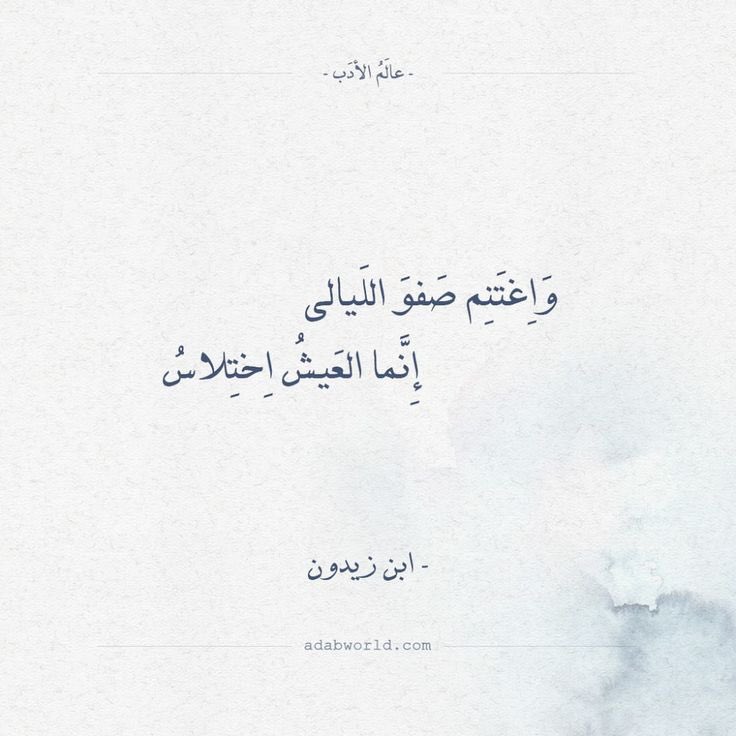 - عالَمُ الأدَب -
وَاِغتَنِم صَفوَ اللَيالى
إِنَّما العَيشُ اِختِلاسُ
- ابن زيدون
adabworld.com